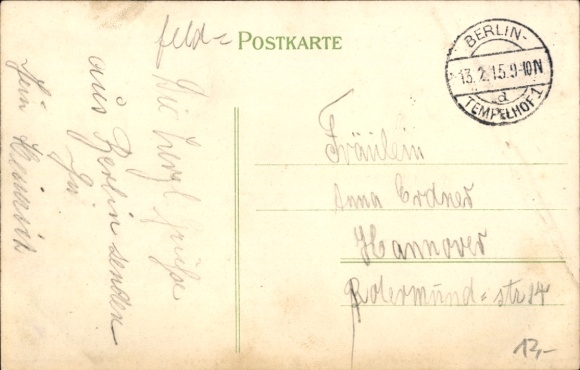 feld= POSTKARTE
BERLIN-
13.2.15.9-10N
d
TEMPELHOF 1
Die herzl. Grüße
aus Berlin senden
Fräulein
Anna Erdner
Hannover
Rdermund=str 14
12,-